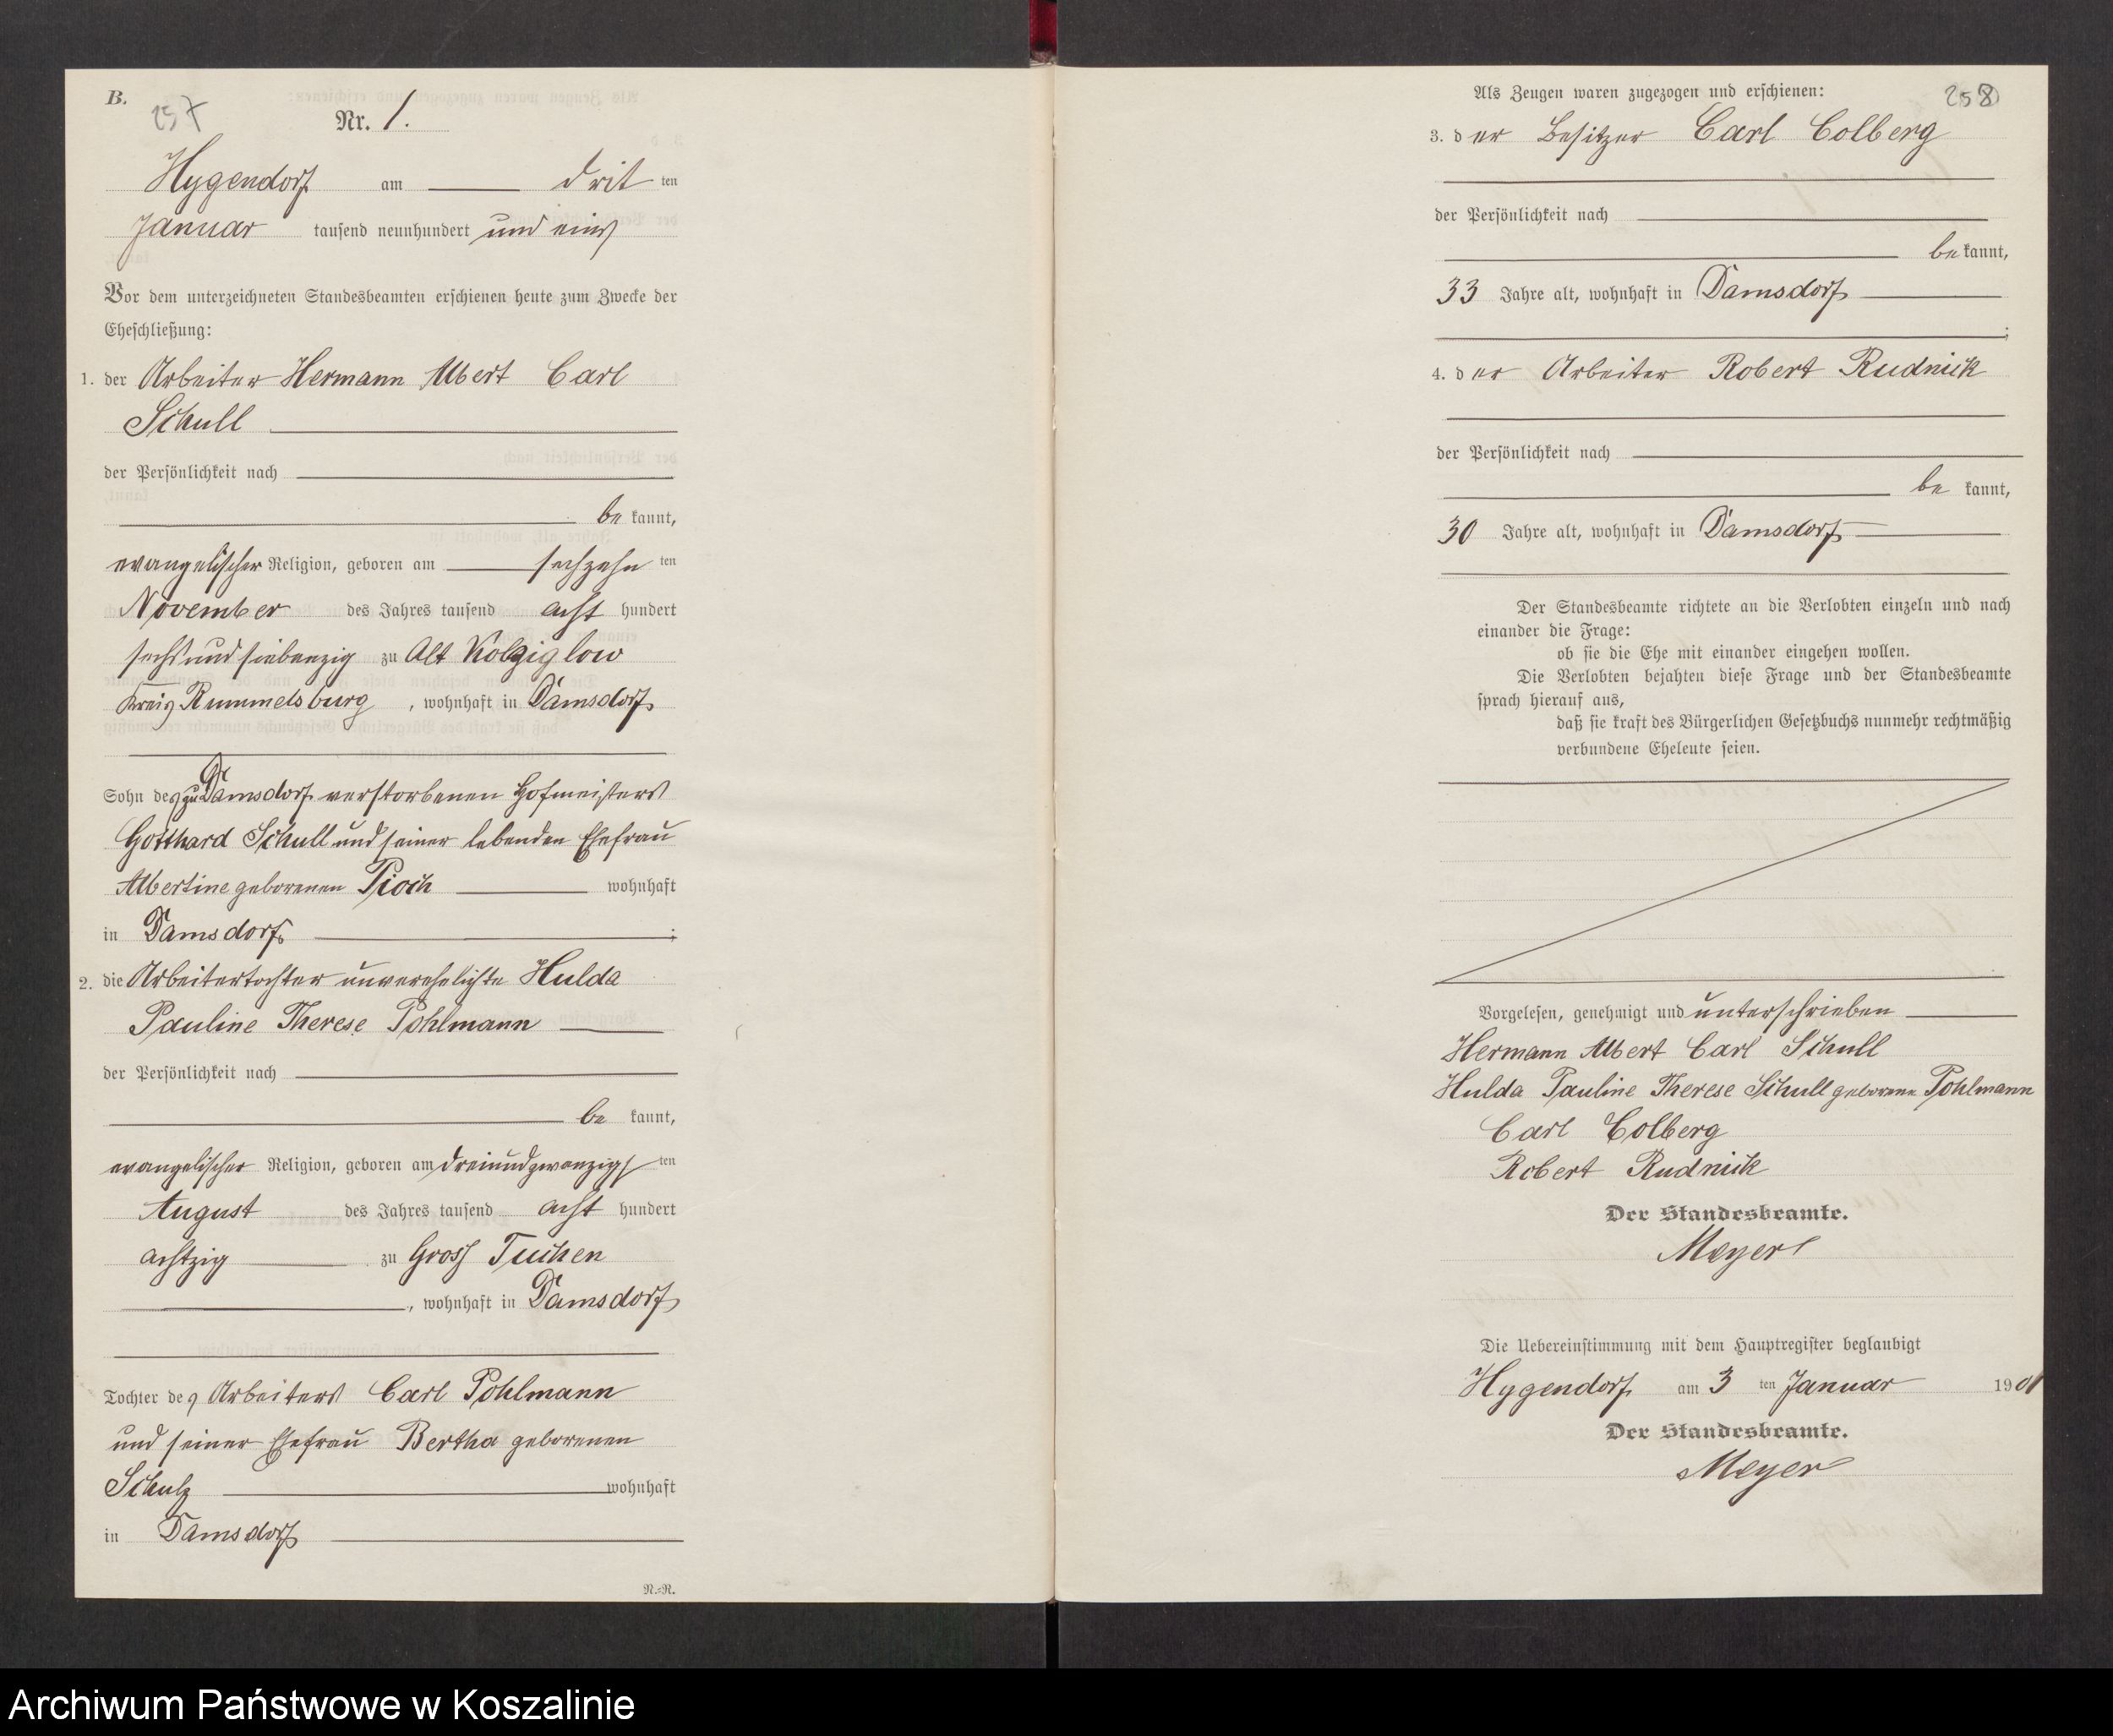 B.
257
Nr. 1.
Hygendorf am drit ten
Januar tausend neunhundert und eins
Vor dem unterzeichneten Standesbeamten erschienen heute zum Zwecke der
Eheschließung:
1. der Arbeiter Hermann Albert Carl
Schull
der Persönlichkeit nach
be kannt,
evangelischer Religion, geboren am sechzehn ten
November des Jahres tausend acht hundert
sechs und siebenzig zu Alt Kolziglow
Kreis Rummelsburg, wohnhaft in Damsdorf
Sohn des zu Damsdorf verstorbenen Hofmeisters
Gotthard Schull und seiner lebenden Ehefrau
Albertine geborenen Pioch wohnhaft
in Damsdorf;
2. die Arbeitertochter unverehelichte Hulda
Pauline Therese Pohlmann
der Persönlichkeit nach
be kannt,
evangelischer Religion, geboren am dreiundzwanzigs ten
August des Jahres tausend acht hundert
achtzig zu Gross Tuchen
, wohnhaft in Damsdorf
Tochter des Arbeiters Carl Pohlmann
und seiner Ehefrau Bertha geborenen
Schulz wohnhaft
in Damsdorf
N.=R.
Als Zeugen waren zugezogen und erschienen:
258
3. der Besitzer Carl Colberg
der Persönlichkeit nach
be kannt,
33 Jahre alt, wohnhaft in Damsdorf
;
4. der Arbeiter Robert Rudnick
der Persönlichkeit nach
be kannt,
30 Jahre alt, wohnhaft in Damsdorf
Der Standesbeamte richtete an die Verlobten einzeln und nach
einander die Frage:
ob sie die Ehe mit einander eingehen wollen.
Die Verlobten bejahten diese Frage und der Standesbeamte
sprach hierauf aus,
daß sie kraft des Bürgerlichen Gesetzbuchs nunmehr rechtmäßig
verbundene Eheleute seien.
Vorgelesen, genehmigt und unterschrieben
Hermann Albert Carl Schull
Hulda Pauline Therese Schull geborene Pohlmann
Carl Colberg
Robert Rudnick
Der Standesbeamte.
Meyer
Die Uebereinstimmung mit dem Hauptregister beglaubigt
Hygendorf am 3 ten Januar 1901
Der Standesbeamte.
Meyer
Archiwum Państwowe w Koszalinie